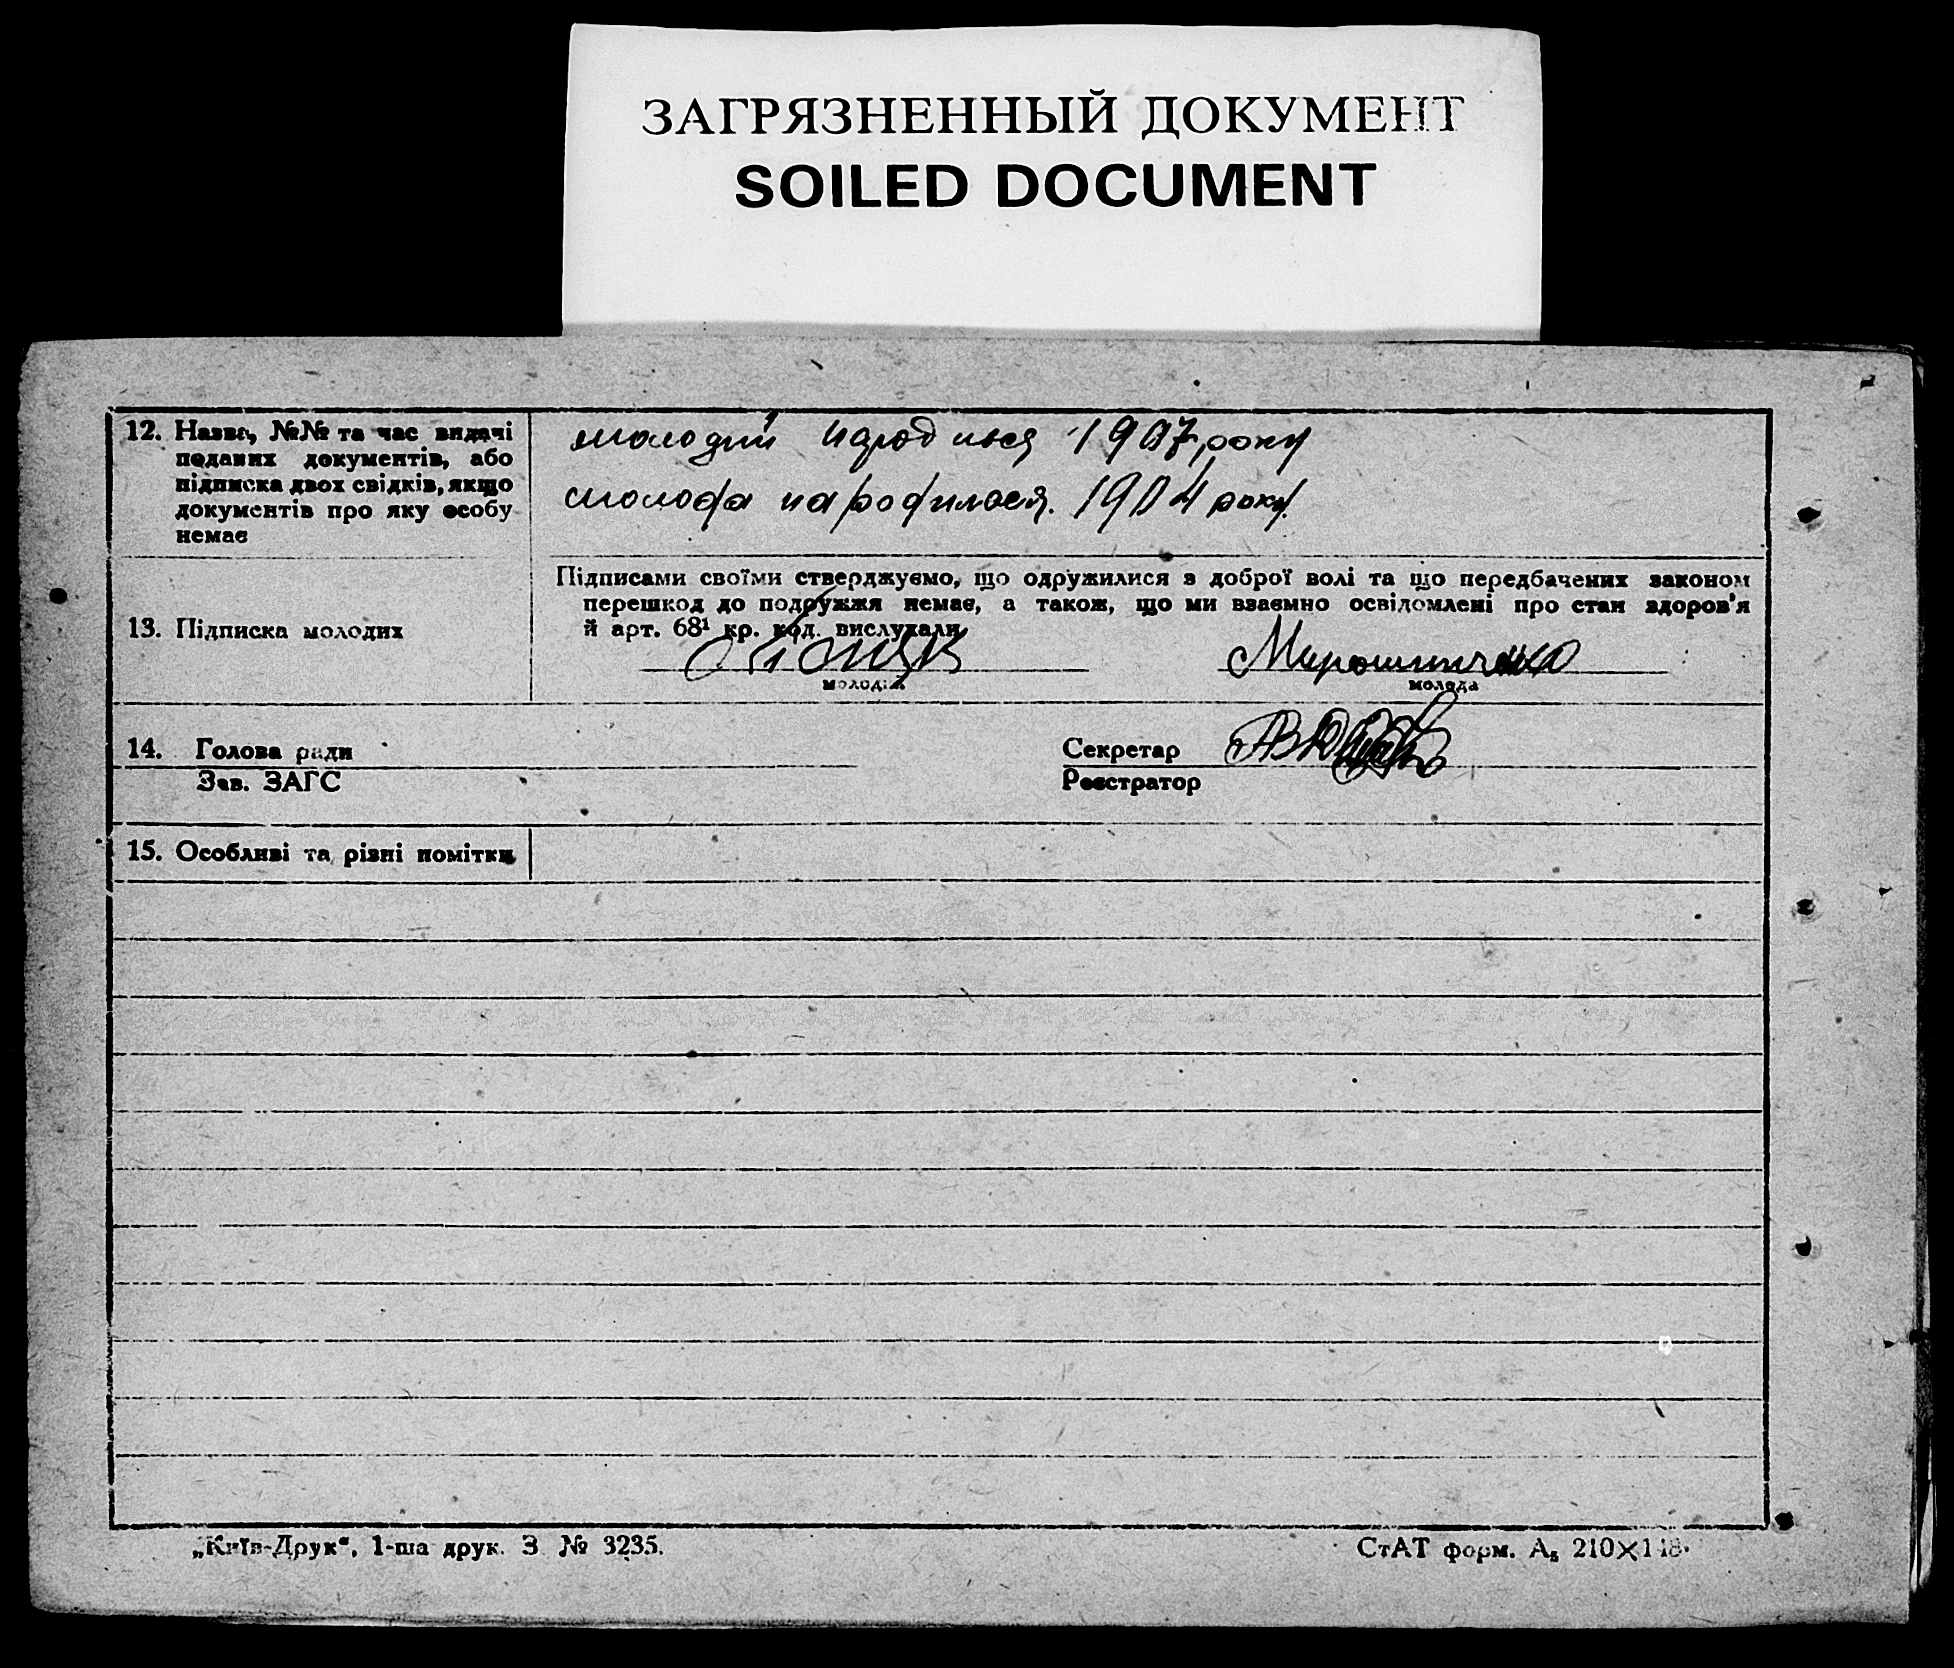 ЗАГРЯЗНЕННЫЙ ДОКУМЕНТ
SOILED DOCUMENT
12. Назва, №№ та час видачі
поданих документів, або
підписка двох свідків, якщо
документів про яку особу
немає
молодий народився 1907 року
молода народилася. 1904 року.
Підписами своїми стверджуємо, що одружилися з доброї волі та що передбачених законом
перешкод до подружжя немає, а також, що ми взаємно освідомлені про стан здоров'я
й арт. 68¹ кр. код. вислухали
13. Підписка молодих
Мирошниченко
молодий
молода
14. Голова ради
Секретар
Зав. ЗАГС
Реєстратор
15. Особливі та різні помітки
„Київ-Друк“, 1-ша друк. З № 3235.
СтАТ форм. А₅ 210×148.